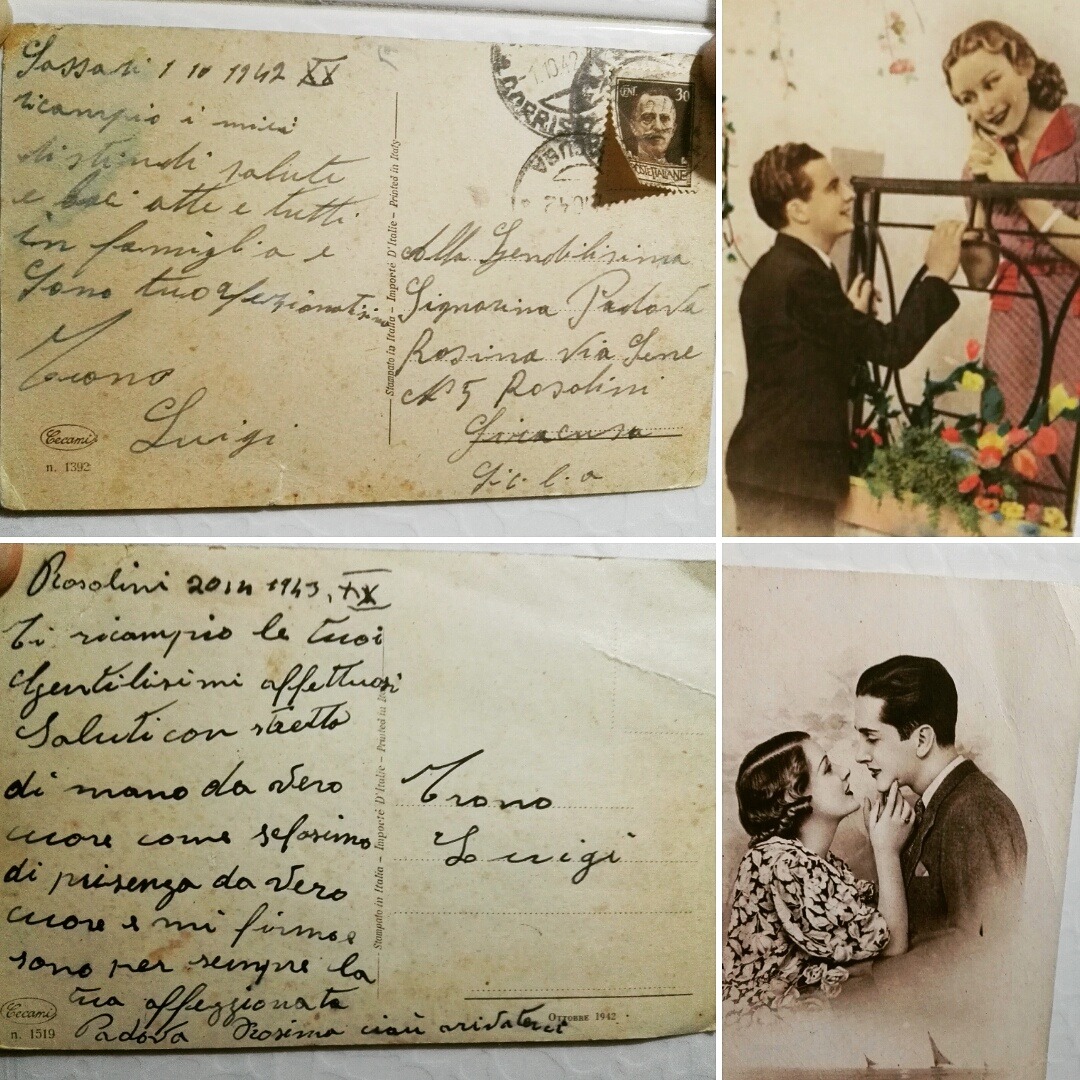 Sassari 1 10 1942 XX
ricampio i miei
distindi salute
e baci atte e tutti
in famiglia e
Sono tuo afezionatisimo
Trono
Luigi
Cecami
n. 1392
Stampato in Italia - Importé D'Italie - Printed in Italy
1.10.42
CENT 30
POSTE ITALIANE
Alla Gendilisima
Signorina Padova
Rosina Via Gene
N° 5 Rosolini
Siracusa
Sic.l.a
Rosolini 1943, XX
Ti ricampio le tuoi
Gentilisimi affettuosi
Saluti con stretta
di mano da vero
cuore come sefosimo
di prisenza da vero
cuore e mi firmo e
sono per sempre la
tua affezzionata
Padova Rosima ciau
Cecami
n. 1519
Stampato in Italia - Importé D'Italie - Printed in
Trono
Luigi
Ottobre 1942